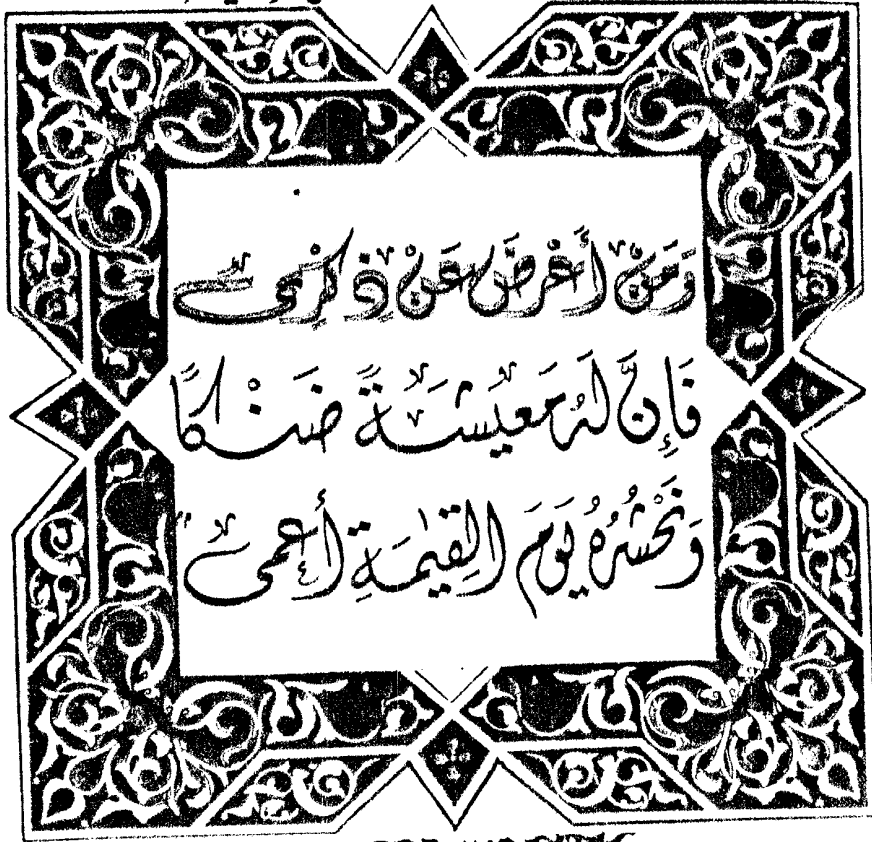 وَمَنْ أَعْرَضَ عَنْ ذِكْرِى
فَإِنَّ لَهُ مَعِيشَةً ضَنْكًا
وَنَحْشُرُهُ يَوْمَ الْقِيٰمَةِ أَعْمٰى